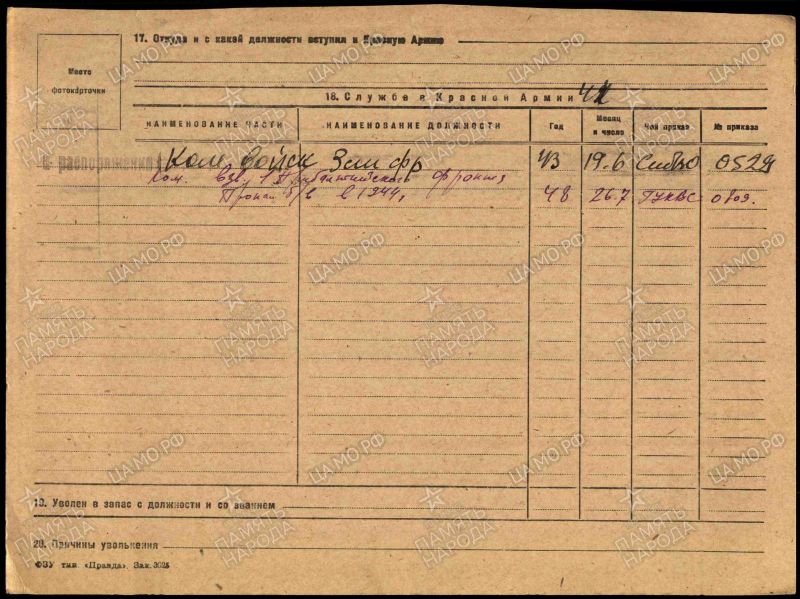 17. Откуда и с какой должности вступил в Красную Армию
Место
фотокарточки
18. Служба в Красной Армии 42
НАИМЕНОВАНИЕ ЧАСТИ НАИМЕНОВАНИЕ ДОЛЖНОСТИ Год Месяц и число Чей приказ № приказа
В распоряжении Ком. Войск Зап фр 43 19.6 СибВО 0529
Ком. взв. 1 Прибалтийского фронта
Пропал б/в в 1944г 48 26.7 ГУКВС
19. Уволен в запас с должности и со званием
20. Причины увольнения
ФЗУ тип. «Правда». Зак. 3025
ЦАМО.РФ
ПАМЯТЬ
НАРОДА